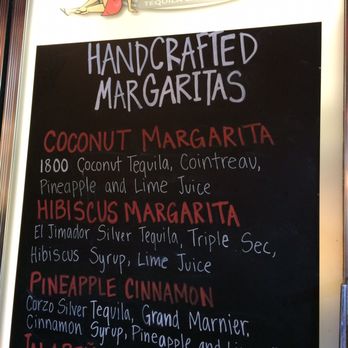 TEQUILA
HANDCRAFTED
MARGARITAS
COCONUT MARGARITA
1800 Coconut Tequila, Cointreau,
Pineapple and Lime Juice
HIBISCUS MARGARITA
El Jimador Silver Tequila, Triple Sec,
Hibiscus Syrup, Lime Juice
PINEAPPLE CINNAMON
Corzo Silver Tequila, Grand Marnier,
Cinnamon Syrup, Pineapple and